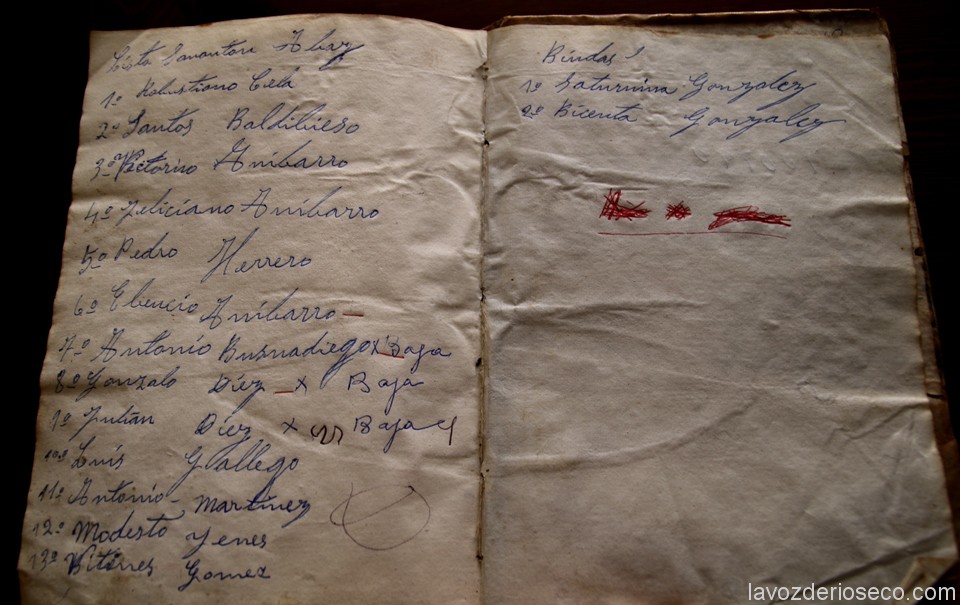 Lista
1º Robustiano Cela
2º Santos Baldibieso
3º Victorino Anibarro
4º Feliciano Anibarro
5º Pedro Herrero
6º Anibarro
7º Antonio Busnadiego x Baja
8º Gonzalo Díez x Baja
9º Julian Díez x Baja
10º Luis Gallego
11º Antonio Martínez
12º Modesto Yenes
13º Gomez
Biudas
1º Saturnina Gonzalez
2º Bicenta Gonzalez
lavozderioseco.com